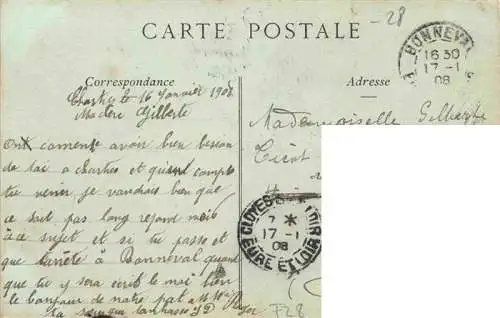 -28
CARTE POSTALE
BONNEVAL
16 30
17 - 1
08
Correspondance
Adresse
Chartres le 16 Janvier 1908
Gilberte
Mademoiselle Gilberte
On comense avoir bien besoin
de toi a chartres et quand compte
tu venir je vaudrais bien que
ce soit pas long repond mois
a ce sujet et si tu passe et
que
a Bonneval quand
que tu y sera écrit le moi bien
le bonjour de notre part a
ta
CLOYES
LOIR
7 *
17 - 1
08
EURE ET LOIR
F28